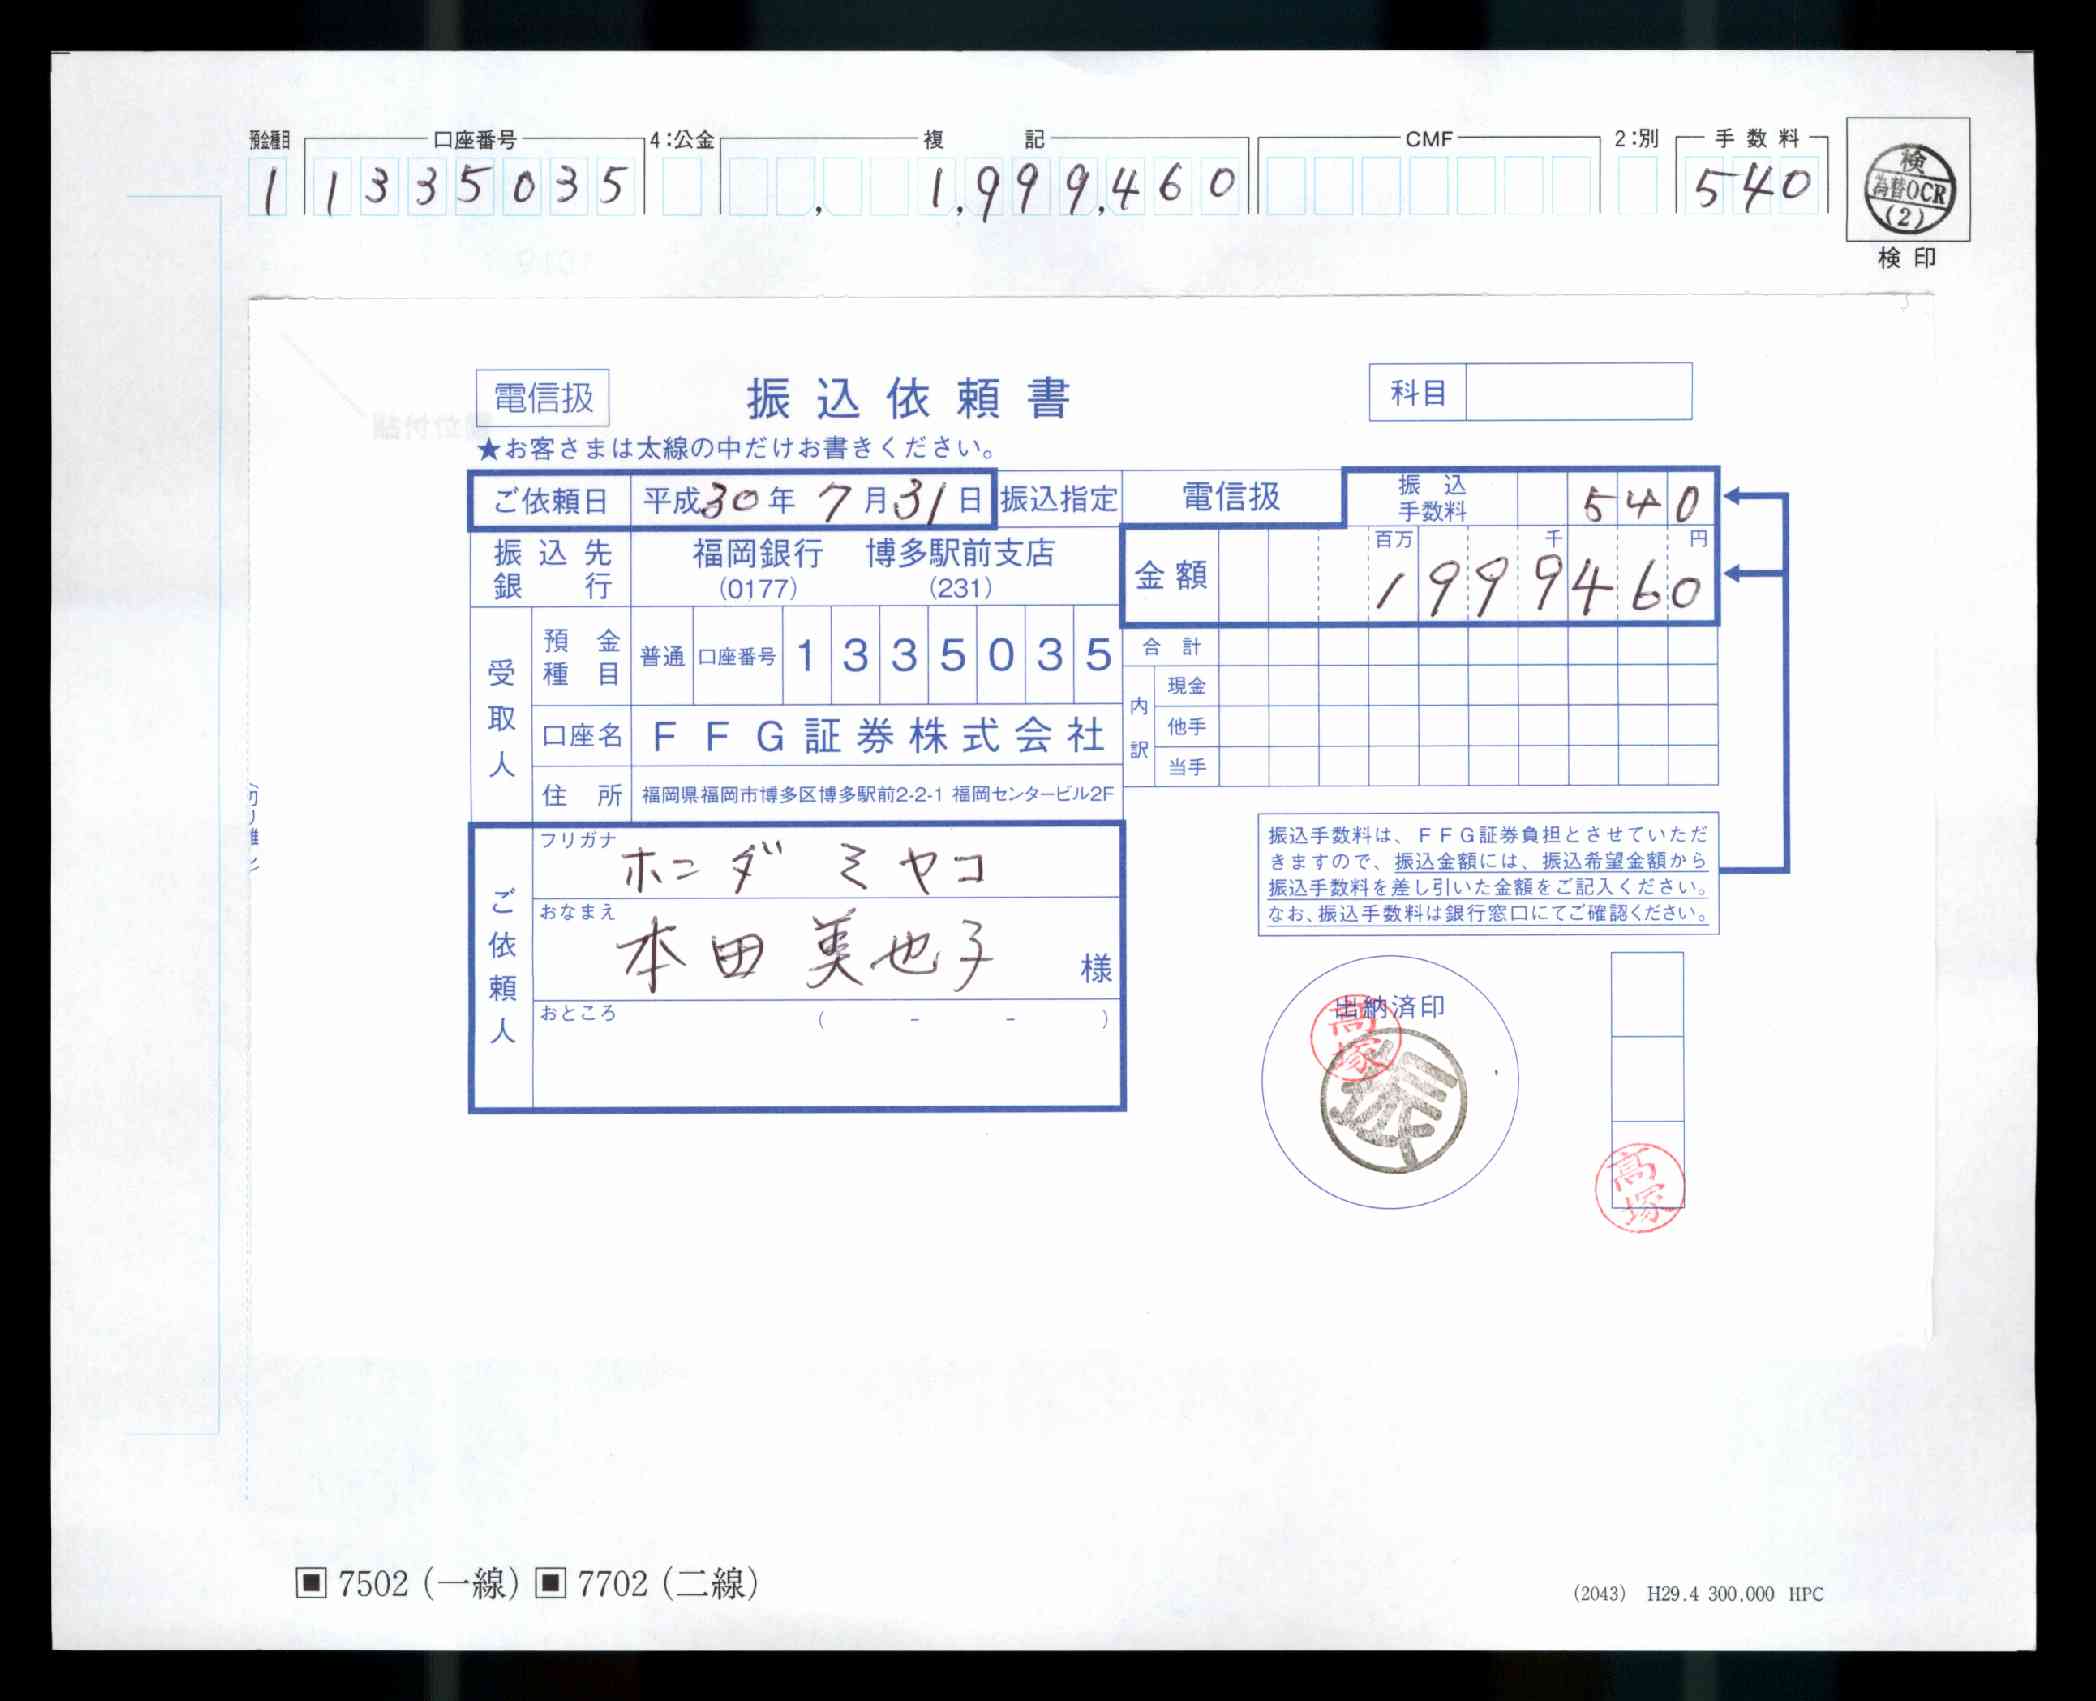 預金種目 口座番号 4:公金 複記 CMF 2:別 手数料
1 1335035 1,999,460 540
検 為替OCR (2)
検印
電信扱 振込依頼書 科目
★お客さまは太線の中だけお書きください。
ご依頼日 平成30年7月31日 振込指定 電信扱 振込手数料 540
振込先銀行 福岡銀行 博多駅前支店
(0177) (231)
金額 百万 千 円
1999460
受取人 預金種目 普通 口座番号 1335035
口座名 FFG証券株式会社
住所 福岡県福岡市博多区博多駅前2-2-1 福岡センタービル2F
合計
内訳 現金
他手
当手
ご依頼人
フリガナ ホンダ ミヤコ
おなまえ 本田 美也子 様
おところ ( - - )
振込手数料は、FFG証券負担とさせていただ
きますので、振込金額には、振込希望金額から
振込手数料を差し引いた金額をご記入ください。
なお、振込手数料は銀行窓口にてご確認ください。
出納済印
高塚
振
高塚
▣ 7502（一線）▣ 7702（二線）
(2043) H29.4 300,000 HPC